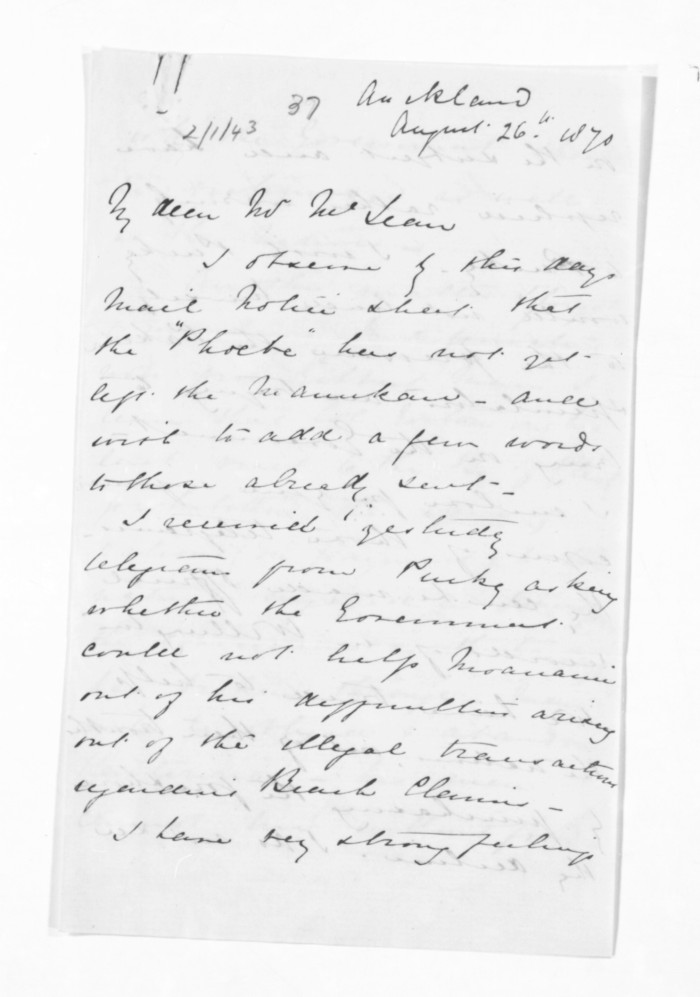 37 Auckland
2/1/43 August 26th 1870
My dear Mr McLean
I observe by this days
Mail Notice sheet that
the "Phoebe" has not yet
left the Manukau - and
wish to add a few words
to those already sent -
I received yesterday
telegram from Puckey asking
whether the Government
could not help Moananui
out of his difficulties arising
out of the illegal transactions
regarding Beach Claims -
I have very strong feelings